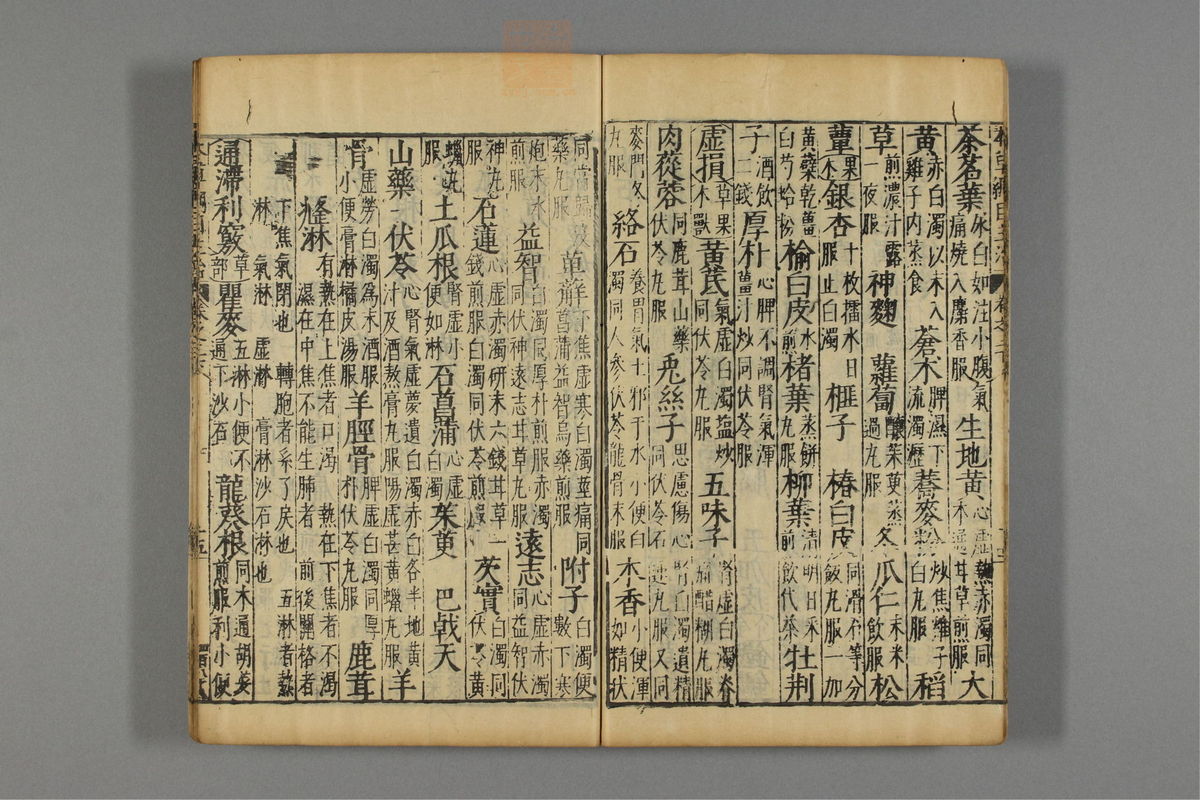 茶茗葉尿白如注小腹氣痛燒入麝香服生地黃心虛熱赤濁同木通甘草煎服大
黃赤白濁以末入雞子內蒸食蒼朮脾濕下流濁瀝蕎麥粉炒焦雞子白丸服稻
草煎濃汁露一夜服神麴蘿蔔釀茱萸蒸過丸服冬瓜仁末米飲服松
蕈果木銀杏十枚擂水日服止白濁榧子椿白皮同滑石等分飯丸服一加
黃蘗乾薑白芍蛤粉榆白皮水煎楮葉蒸餅丸服柳葉清明日采煎飲代茶牡荊
子酒飲二錢厚朴心脾不調腎氣渾薑汁炒同伏苓服
虛損草果木獸黃芪氣虛白濁鹽炒同伏苓丸服五味子腎虛白濁脊痛醋糊丸服
肉蓯蓉同鹿茸山藥伏苓丸服兔絲子思慮傷心腎白濁遺精同伏苓石蓮丸服又同
麥門冬丸服絡石養胃氣土邪干水小便白濁同人參伏苓龍骨末服木香小便渾如精狀
同當歸沒藥丸服萆薢下焦虛寒白濁莖痛同菖蒲益智烏藥煎服附子白濁便數下寒
炮末水煎服益智白濁同厚朴煎服赤濁同伏神遠志甘草丸服遠志心虛赤濁同益智伏
神丸服石蓮心虛赤濁研末六錢甘草一錢煎服白濁同伏苓煎服芡實白濁同伏苓黃
蠟丸服土瓜根腎虛小便如淋石菖蒲心虛白濁茱萸巴戟天
山藥伏苓心腎氣虛夢遺白濁赤白各半地黃汁及酒熬膏丸服陽虛甚黃蠟丸服羊
骨虛勞白濁為末酒服小便膏淋橘皮湯服羊脛骨脾虛白濁同厚朴伏苓丸服鹿茸
癃淋有熱在上焦者口渴 熱在下焦者不渴 濕在中焦不能生肺者 前後關格者
下焦氣閉也 轉胞者系了戾也 五淋者熱淋 氣淋 虛淋 膏淋 沙石淋也
通滯利竅草部瞿麥五淋小便不通下沙石龍葵根同木通胡荽煎服利小便